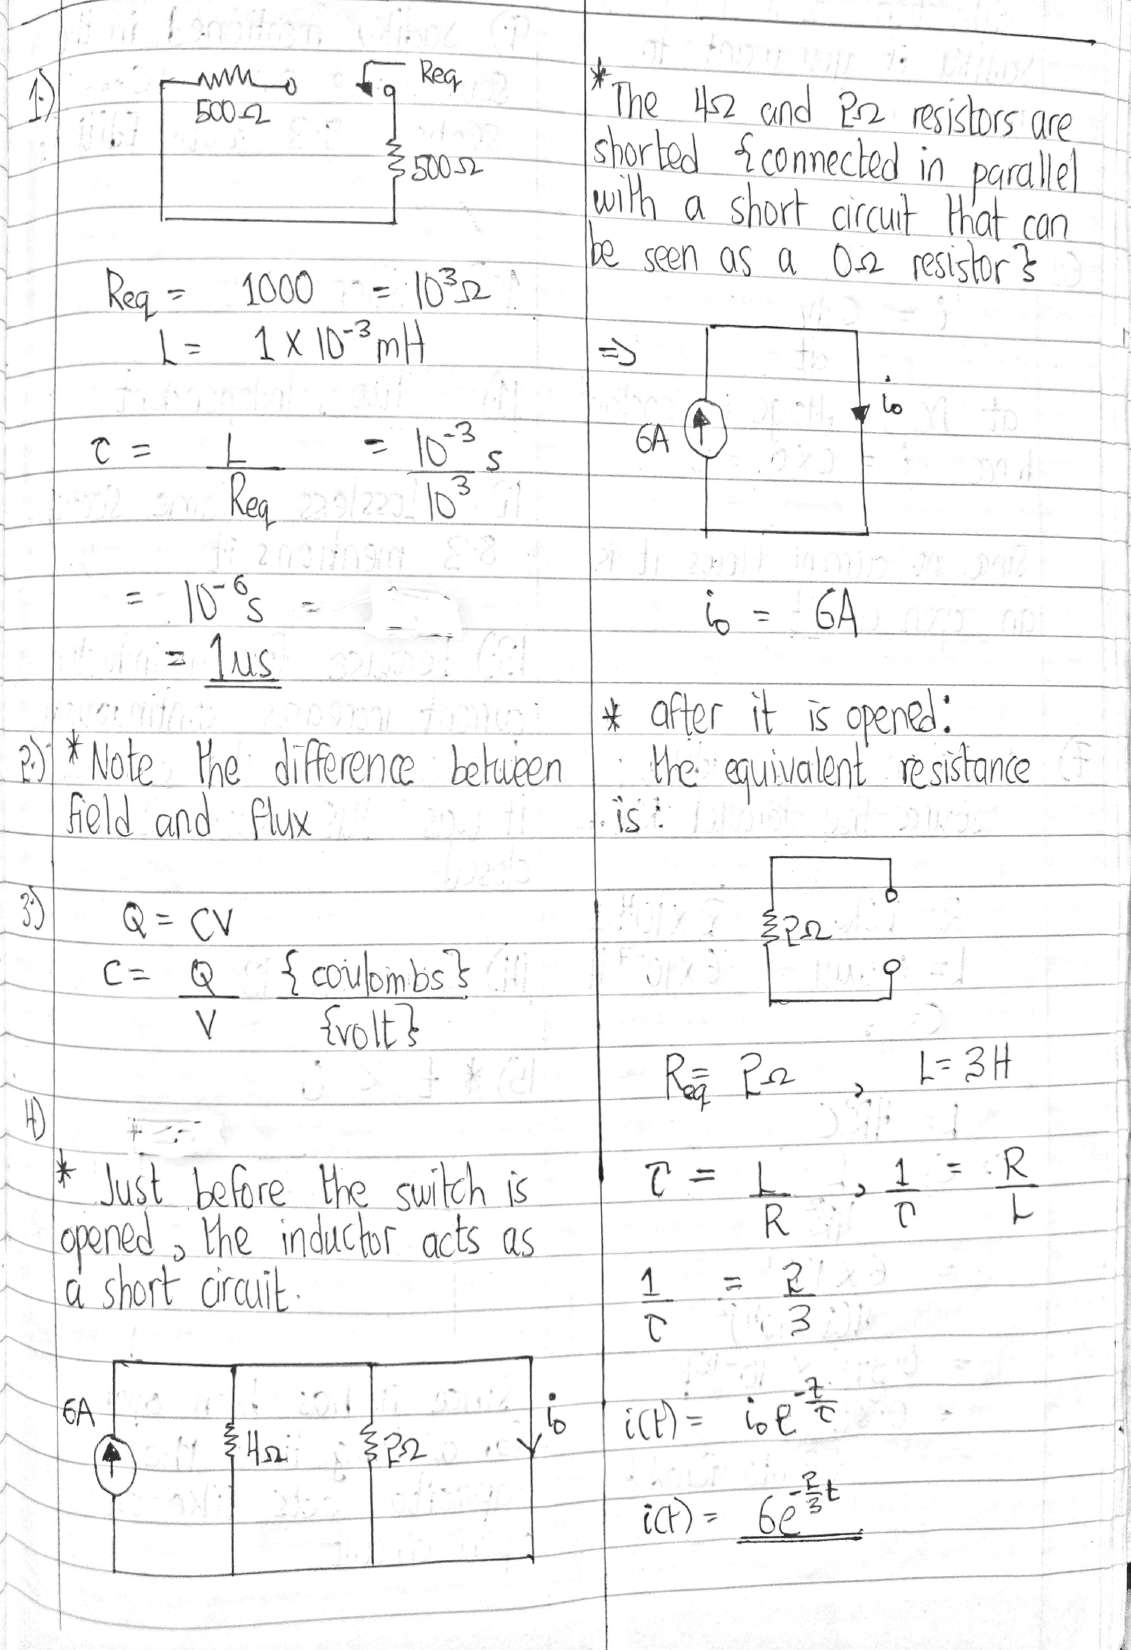 1.)
500Ω
Req
500Ω
Req = 1000 = 10³Ω
L = 1 × 10⁻³ mH
τ = L / Req = 10⁻³ / 10³ s
= 10⁻⁶s =
= 1us
2.) * Note the difference between
field and flux
3.) Q = CV
C = Q / V {coulombs} / {volt}
4)
* Just before the switch is
opened, the inductor acts as
a short circuit.
6A
4Ω
2Ω
i₀
* The 4Ω and 2Ω resistors are
shorted {connected in parallel
with a short circuit that can
be seen as a 0Ω resistor}
=>
6A
i₀
i₀ = 6A
* after it is opened:
the equivalent resistance
is:
2Ω
Req = 2Ω , L = 3H
τ = L / R , 1 / τ = R / L
1 / τ = 2 / 3
i(t) = i₀ e^(-t/τ)
i(t) = 6e^(-2/3 t)